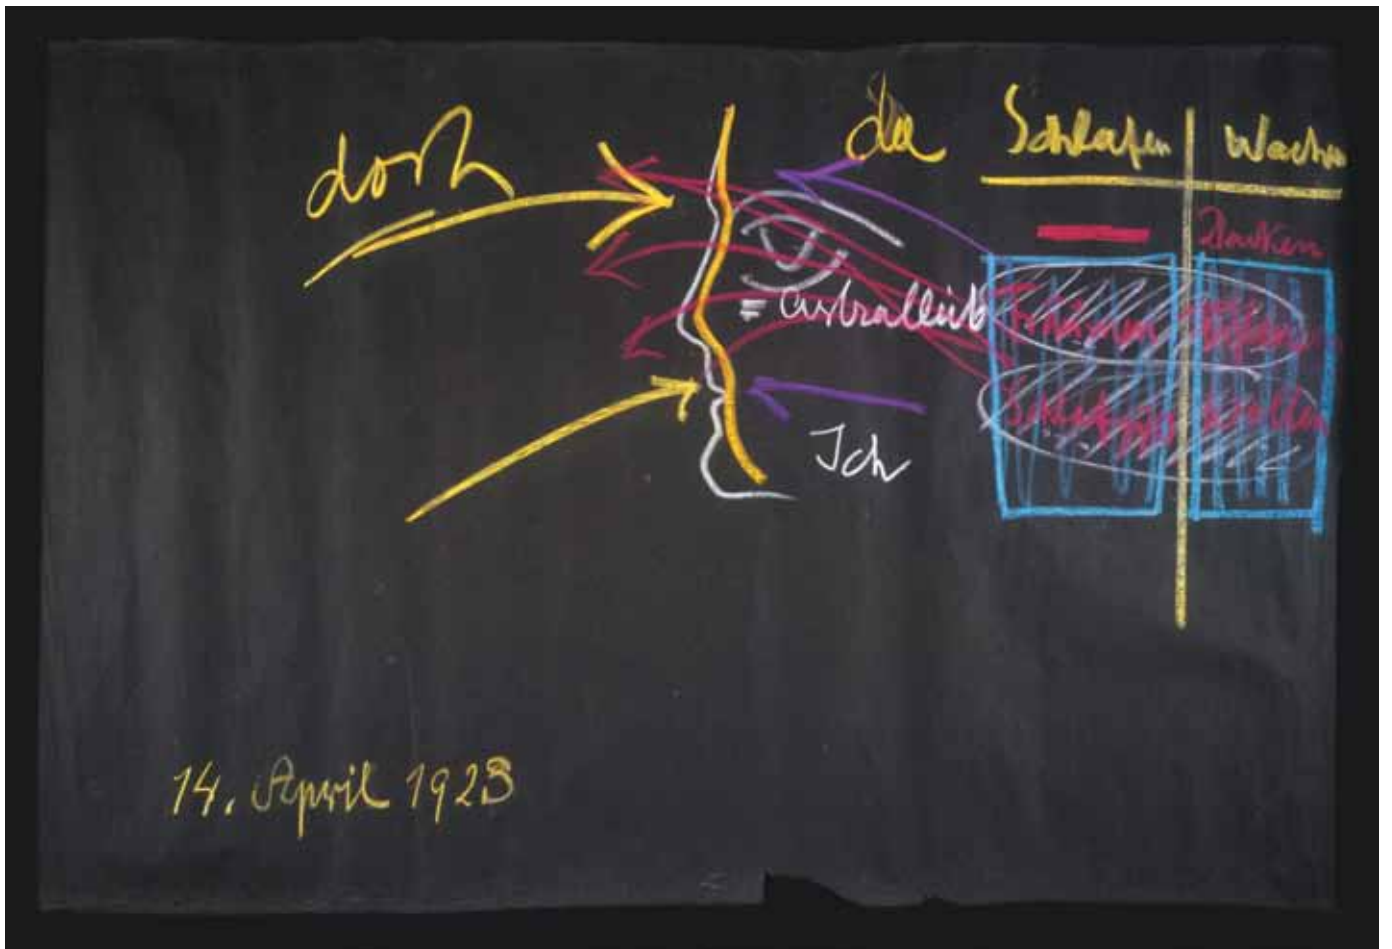 dort
da
Schlafen Wachen
Denken
= astralleib
Wollen
Ich
14. April 1923